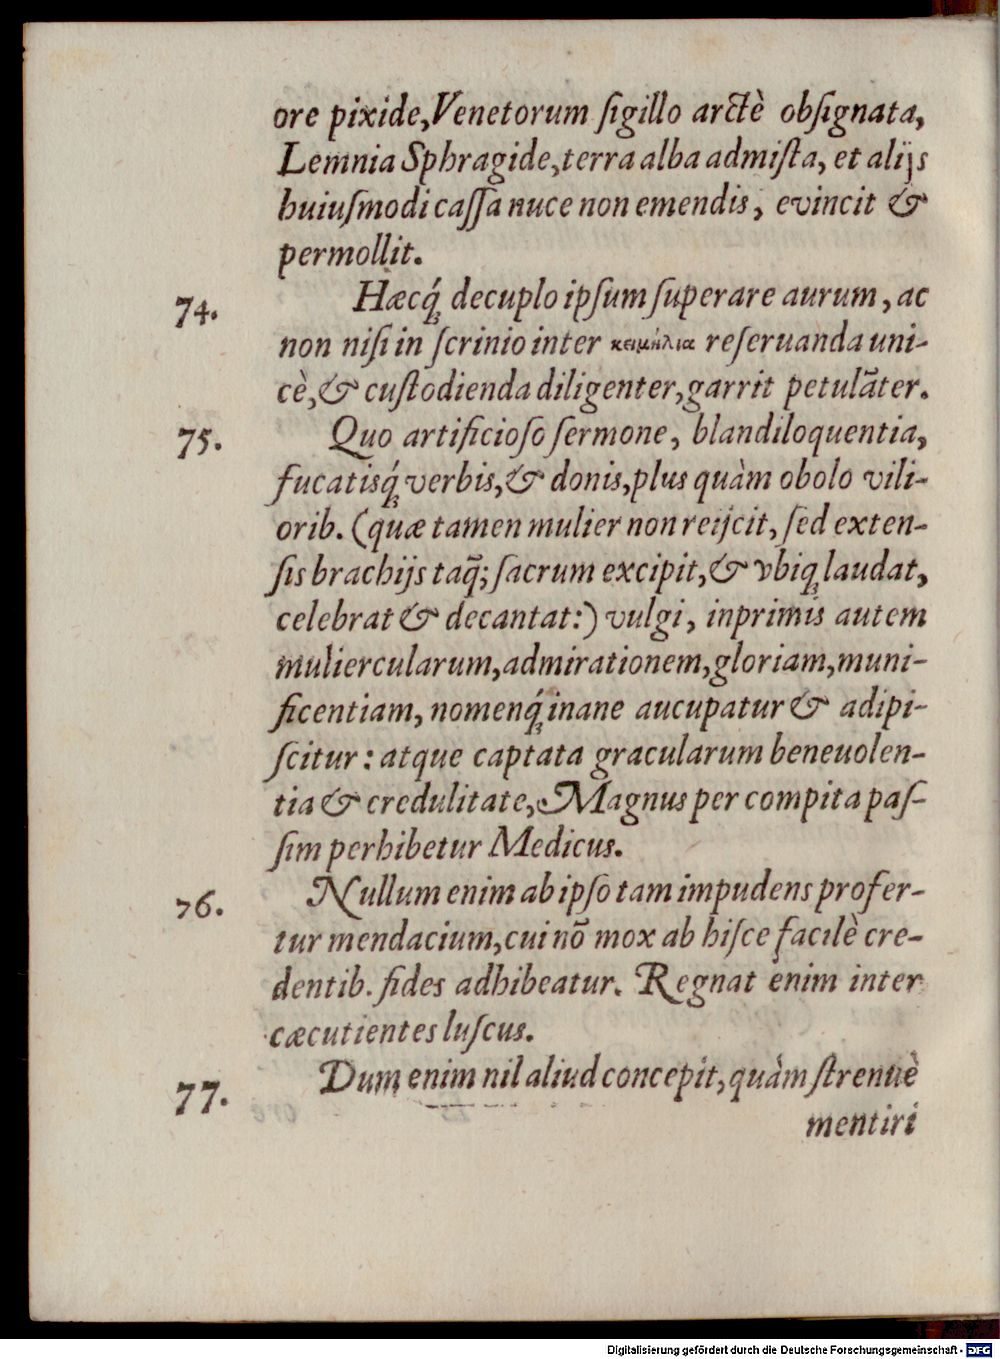 ore pixide, Venetorum ſigillo arctè obſignata,
Lemnia Sphragide, terra alba admiſta, et alijs
huiuſmodi caſſa nuce non emendis, evincit &
permollit.
74. Hæcq́ꝫ decuplo ipſum ſuperare aurum, ac
non niſi in ſcrinio inter κειμήλια reſeruanda uni-
cè, & cuſtodienda diligenter, garrit petulãter.
75. Quo artificioſo ſermone, blandiloquentia,
fucatisq́ꝫ verbis, & donis, plus quàm obolo vili-
orib. (quæ tamen mulier non reijcit, ſed exten-
ſis brachijs taq̃; ſacrum excipit, & vbiqꝫ laudat,
celebrat & decantat:) vulgi, inprimis autem
muliercularum, admirationem, gloriam, muni-
ficentiam, nomenq́ꝫ inane aucupatur & adipi-
ſcitur: atque captata gracularum beneuolen-
tia & credulitate, Magnus per compita paſ-
ſim perhibetur Medicus.
76. Nullum enim ab ipſo tam impudens profer-
tur mendacium, cui nõ mox ab hiſce facilè cre-
dentib. fides adhibeatur. Regnat enim inter
cæcutientes luſcus.
77. Dum enim nil aliud concepit, quàm ſtrenuè
mentiri
Digitalisierung gefördert durch die Deutsche Forschungsgemeinschaft - DFG